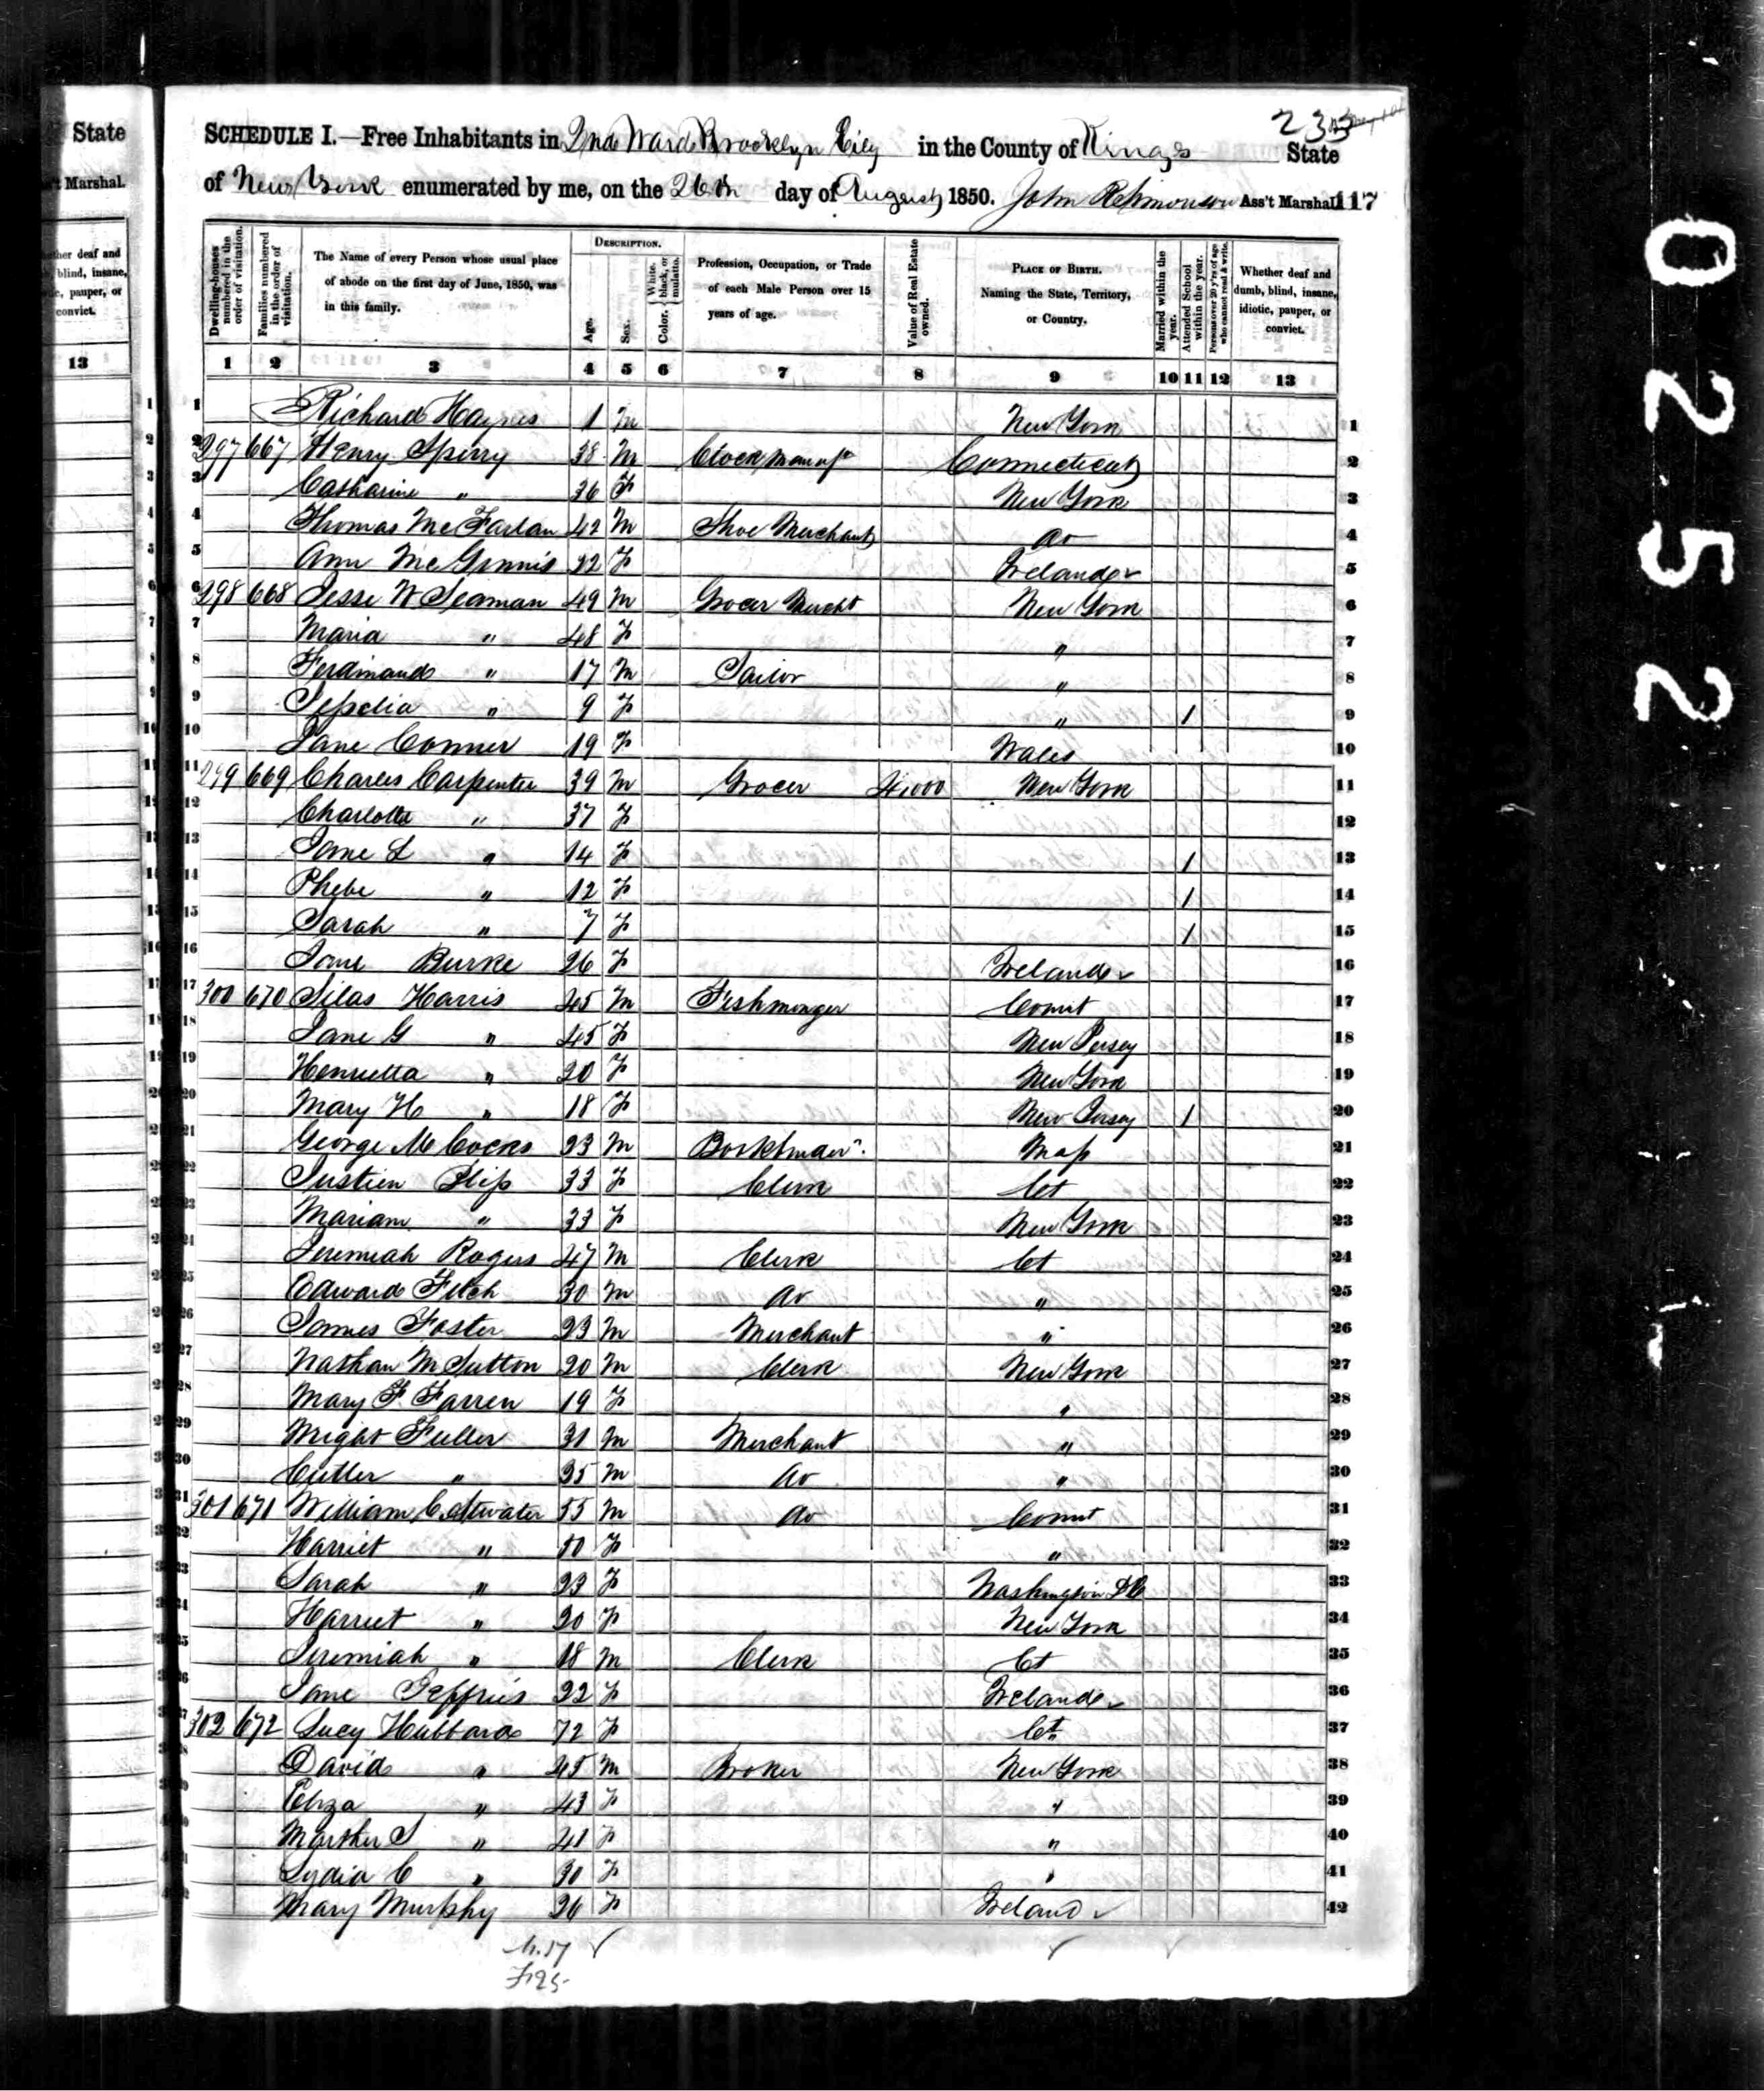 State
't Marshal.
ther deaf and
, blind, insane,
ic, pauper, or
convict.
13
233
SCHEDULE I.—Free Inhabitants in 2nd Ward Brooklyn City in the County of Kings State
of New York enumerated by me, on the 26th day of August 1850. John Ass't Marshal. 117
Dwelling-houses numbered in the order of visitation.
Families numbered in the order of visitation.
The Name of every Person whose usual place of abode on the first day of June, 1850, was in this family.
DESCRIPTION.
Age.
Sex.
Color. { White, black, or mulatto.
Profession, Occupation, or Trade of each Male Person over 15 years of age.
Value of Real Estate owned.
PLACE OF BIRTH. Naming the State, Territory, or Country.
Married within the year.
Attended School within the year.
Persons over 20 y'rs of age who cannot read & write.
Whether deaf and dumb, blind, insane, idiotic, pauper, or convict.
1 2 3 4 5 6 7 8 9 10 11 12 13
1 Richard Haynes 1 M New York 1
2 297 667 Henry Sperry 38 M Clock manufr Connecticut 2
3 Catharine " 36 F New York 3
4 Thomas McFarlan 42 M Shoe Merchant do 4
5 Ann McGinnis 22 F Ireland 5
6 298 668 Jesse W Seaman 49 M Grocer Mercht New York 6
7 Maria " 48 F " 7
8 Ferdinand " 17 M Sailor " 8
9 " 9 F " 1 9
10 Jane Conner 19 F Wales 10
11 299 669 Charles Carpenter 39 M Grocer 4,000 New York 11
12 Charlotte " 37 F 12
13 Jane L " 14 F 1 13
14 Phebe " 12 F 1 14
15 Sarah " 7 F 1 15
16 Jane Burke 26 F Ireland 16
17 300 670 Silas Harris 45 M Fishmonger Connt 17
18 Jane G " 45 F New Jersey 18
19 Henrietta " 20 F New York 19
20 Mary H " 18 F New Jersey 1 20
21 George M Cocks 23 M Mass 21
22 33 F Clerk Ct 22
23 Mariam " 33 F New York 23
24 Jeremiah Rogers 47 M Clerk Ct 24
25 Edward Fitch 30 M do " 25
26 James Foster 23 M Merchant " 26
27 Nathan M Sutton 20 M Clerk New York 27
28 Mary F Farren 19 F " 28
29 Wright Fuller 31 M Merchant " 29
30 Cutler " 35 M do " 30
31 301 671 William C Atwater 55 M do Connt 31
32 Harriet " 50 F " 32
33 Sarah " 23 F Washington DC 33
34 Harriet " 20 F New York 34
35 Jeremiah " 18 M Clerk Ct 35
36 Jane Jeffries 22 F Ireland 36
37 302 672 Lucy Hubbard 72 F Ct 37
38 David " 45 M Broker New York 38
39 Eliza " 43 F " 39
40 Marther S " 41 F " 40
41 Lydia C " 30 F " 41
42 Mary Murphy 26 F Ireland 42
M. 17
F 25
0252